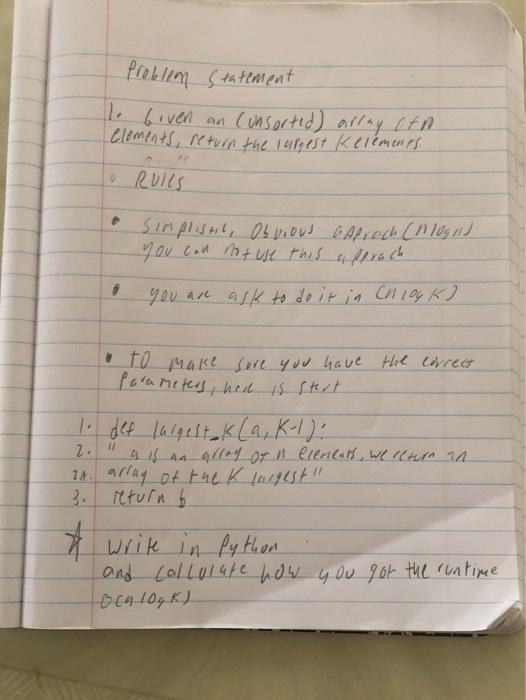 Problem Statement
1. Given an (unsorted) array of n
elements, return the largest K elements
• RULES
• Simplistic, Obvious approch (nlogn)
you can not use this apprach
• you are ask to do it in (n log K)
• to make sure you have the correct
Parameters, here is start
1. def largest_K(a, K-1):
2. " a is an array of n elements, we return an
2A. array of the K largest "
3. return b
☆ write in Python
and callculate how you got the runtime
O(n log K)